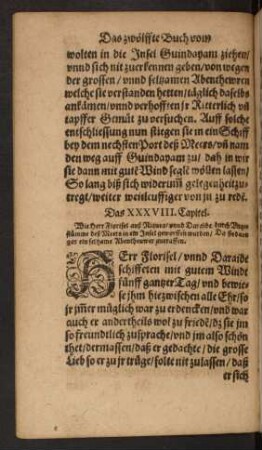 Das zwölffte Buch vom
wolten in die Insel Guindayam ziehen/
vnnd sich nit zuerkennen geben/ von wegen
der grossen/ vnnd seltzamen Abenthewren
welche sie verstanden hetten/ täglich daselbs
ankämen/ vnnd verhofften jr Ritterlich vñ
tapffer Gemüt zu versuchen. Auff solche
entschliessung nun stiegen sie in ein Schiff
bey dem nechsten Port deß Meers/ vñ nam
den weg auff Guindayam zu/ dah in wir
sie dann mit gutē Wind seglē wöllen lassen/
So lang biß sich widerum̃ gelegenheit zu-
tregt/ weiter weitleuffiger von jn zu redē.
Das XXXVIII. Capitel.
Wie Herr Florisel auß Niquea/ vnnd Daraide durch Vnge-
stümme des Meers in ein Insel geworffen wurden/ Da
ger ein seltzame Abenthewer zutraffen.
HErr Florisel/ vnnd Daraide
schiffeten mit gutem Windt
fünff gantzer Tag/ vnd bewie-
se jhm hiezwischen alle Ehr/ so
jr jm̃er müglich war zu erdencken/ vnd war
auch er andertheils wol zu friedē/ dz sie jm
so freundtlich zusprach/ vnd jm also schön
thet/ dermassen/ daß er gedachte/ die grosse
Lieb so er zu jr trüge/ solte nit zulassen/ daß
er sich